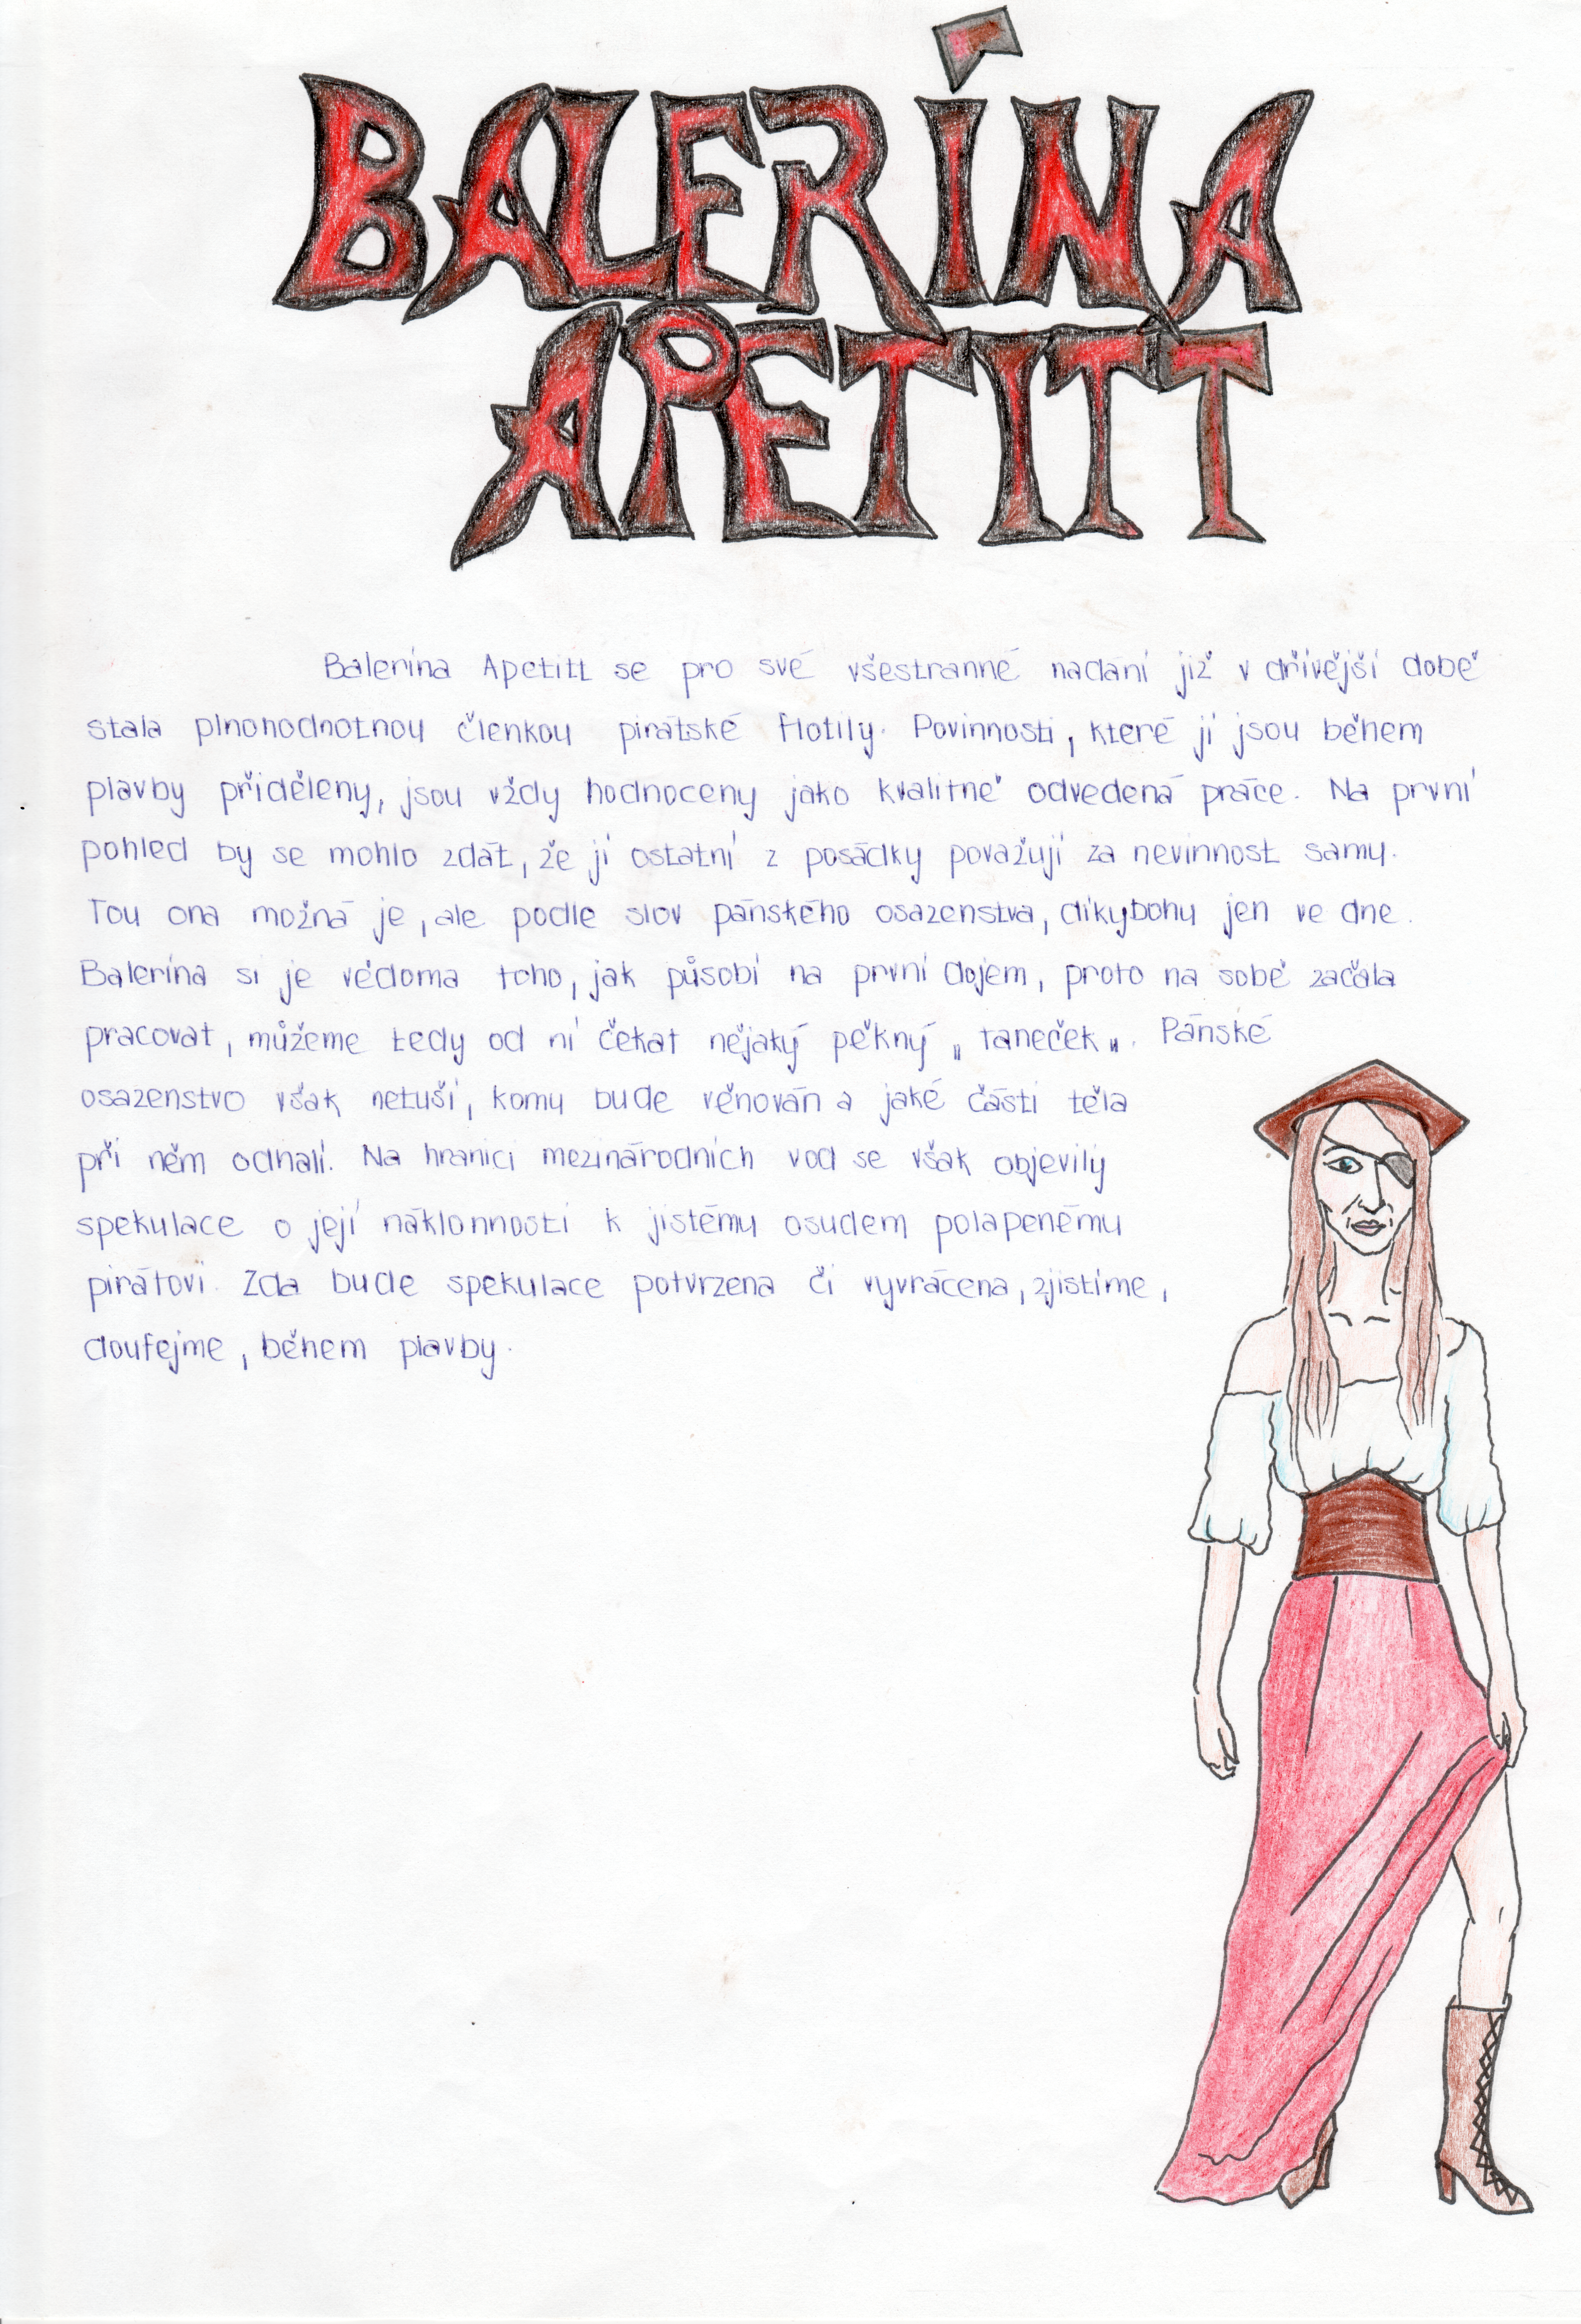 BALERÍNA
APETITT
Balerína Apetitt se pro své všestranné nadání již v dřívější době
stala plnohodnotnou členkou pirátské flotily. Povinnosti, které jí jsou během
plavby přiděleny, jsou vždy hodnoceny jako kvalitně odvedená práce. Na první
pohled by se mohlo zdát, že ji ostatní z posádky považují za nevinnost samu.
Tou ona možná je, ale podle slov pánského osazenstva, díkybohu jen ve dne.
Balerína si je vědoma toho, jak působí na první dojem, proto na sobě začala
pracovat, můžeme tedy od ní čekat nějaký pěkný „ taneček ". Pánské
osazenstvo však netuší, komu bude věnován a jaké části těla
při něm odhalí. Na hranici mezinárodních vod se však objevily
spekulace o její náklonnosti k jistému osudem polapenému
pirátovi. Zda bude spekulace potvrzena či vyvrácena, zjistíme,
doufejme, během plavby.